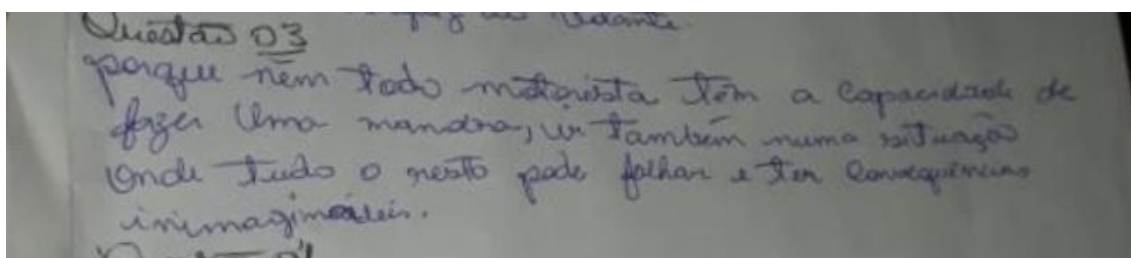 volante.
Questão 03
porque nem todo motorista têm a capacidade de
fazer uma mandra, ir também numa situação
onde tudo o resto pode falhar e ter consequências
inimagináveis.